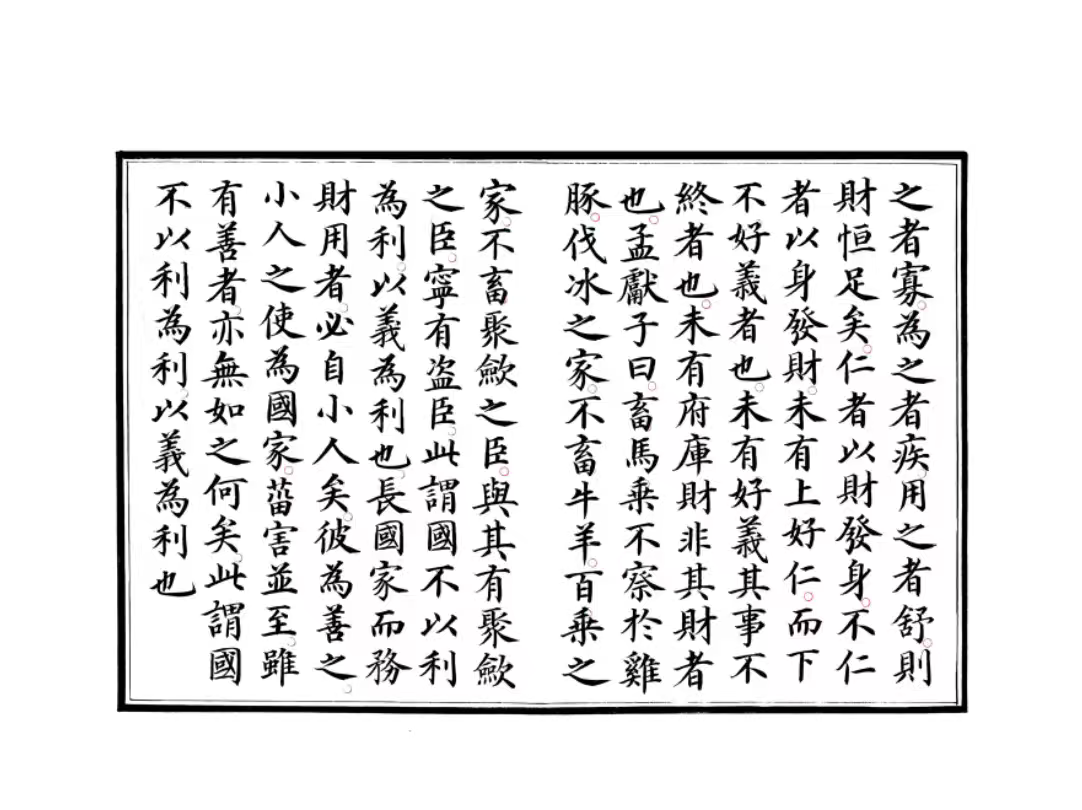 之者寡。為之者疾。用之者舒。則
財恒足矣。仁者以財發身。不仁
者以身發財。未有上好仁。而下
不好義者也。未有好義其事不
終者也。未有府庫財非其財者
也。孟獻子曰。畜馬乘不察於雞
豚。伐冰之家。不畜牛羊。百乘之
家。不畜聚斂之臣。與其有聚斂
之臣。寧有盗臣。此謂國不以利
為利。以義為利也。長國家而務
財用者。必自小人矣。彼為善之。
小人之使為國家。菑害並至。雖
有善者。亦無如之何矣。此謂國
不以利為利。以義為利也